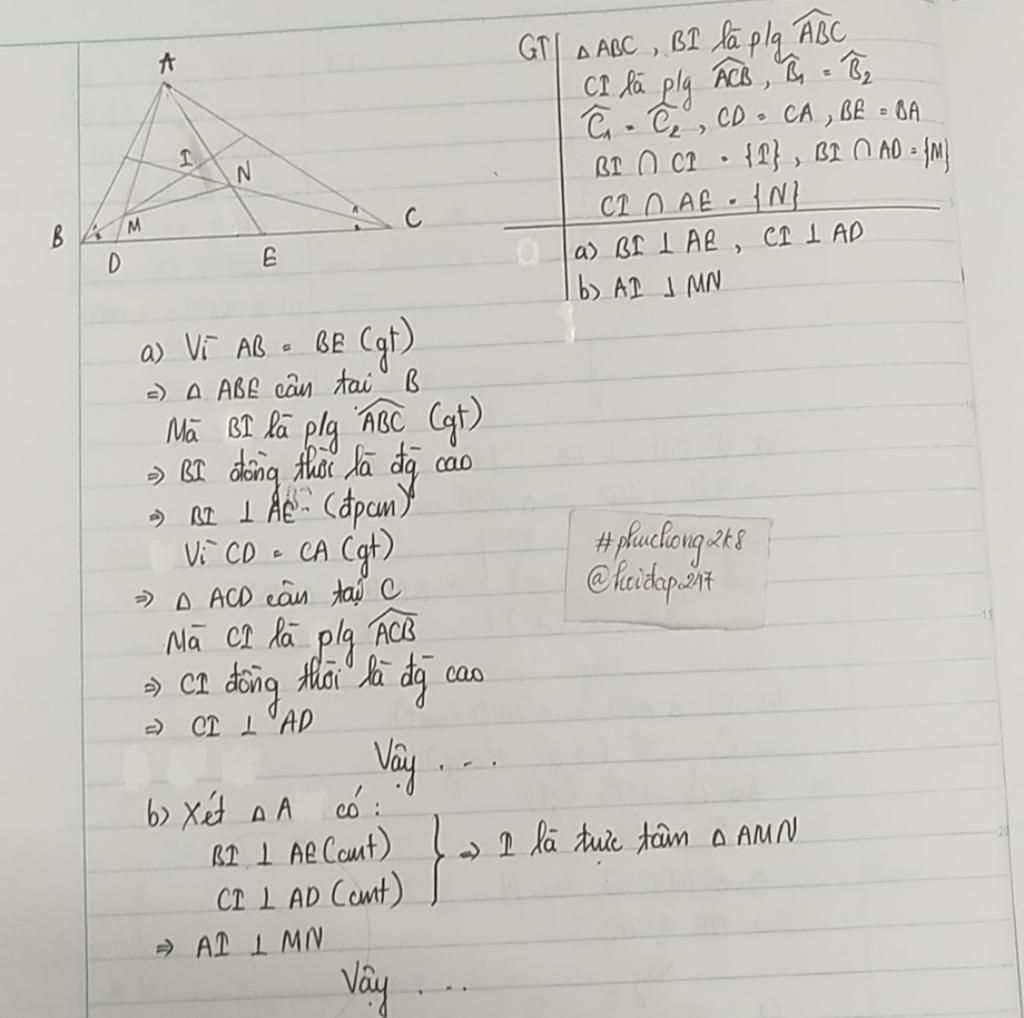 A
I
N
B
M
C
D
E
GT
△ABC, BI là p/g ABC
CI là p/g ACB, B₁ = B₂
C₁ = C₂, CD = CA, BE = BA
BI ∩ CI = {I}, BI ∩ AD = {M}
CI ∩ AE = {N}
a) BI ⊥ AE, CI ⊥ AD
b) AI ⊥ MN
a) Vì AB = BE (gt)
⇒ △ABE cân tại B
Mà BI là p/g ABC (gt)
⇒ BI đồng thời là đg cao
⇒ BI ⊥ AE (đpcm)
Vì CD = CA (gt)
⇒ △ ACD cân tại C
Mà CI là p/g ACB
⇒ CI đồng thời là đg cao
⇒ CI ⊥ AD
Vậy ...
#phuchong2k8
@hoidap247
b) Xét △ A có:
BI ⊥ AE (cmt)
CI ⊥ AD (cmt)
} ⇒ I là trực tâm △ AMN
⇒ AI ⊥ MN
Vậy ...